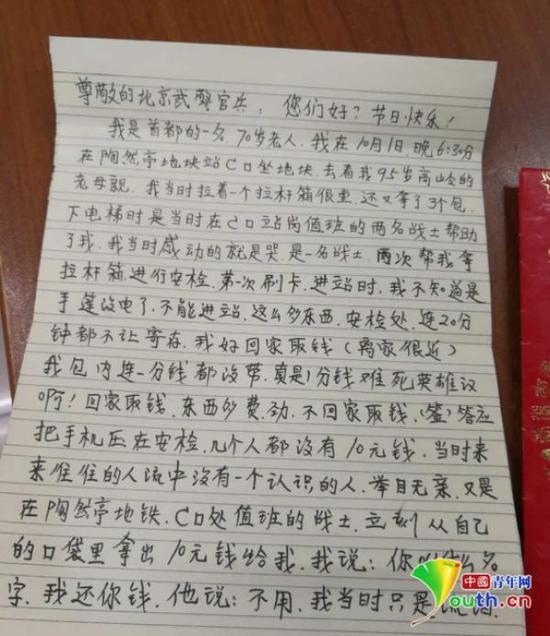 尊敬的北京武警官兵，您们好？节日快乐！
我是首都的一名，70岁老人，我在10月1日，晚6:30分
在陶然亭地块站C口坐地块，去看我95岁高龄的
老母亲，我当时拉着一个拉杆箱很重，还又拿了3个包，
下电梯时是当时在C口立岗值班的两名战士帮助
了我，我当时感动的就是哭，是一名战士，两次帮我拿
拉杆箱，进行安检，第一次刷卡，进站时，我不知道是
手 没电了，不能进站，这么多东西，安检处，连20分
钟都不让寄存，我好回家取钱（离家很近）
我包内连一分钱都没带，真是1分钱难死英雄汉
啊！回家取钱，东西多费劲，不回家取钱，（签）答应
把手机压在安检，几个人都没有10元钱，当时来
来住住的人流中没有一个认识的人，举目无亲，又是
在陶然亭地铁，C口处值班的战士，立刻从自己
的口袋里拿出10元钱给我，我说：你 名
字，我还你钱，他说：不用，我当时只是
中國青年网
Youth.cn